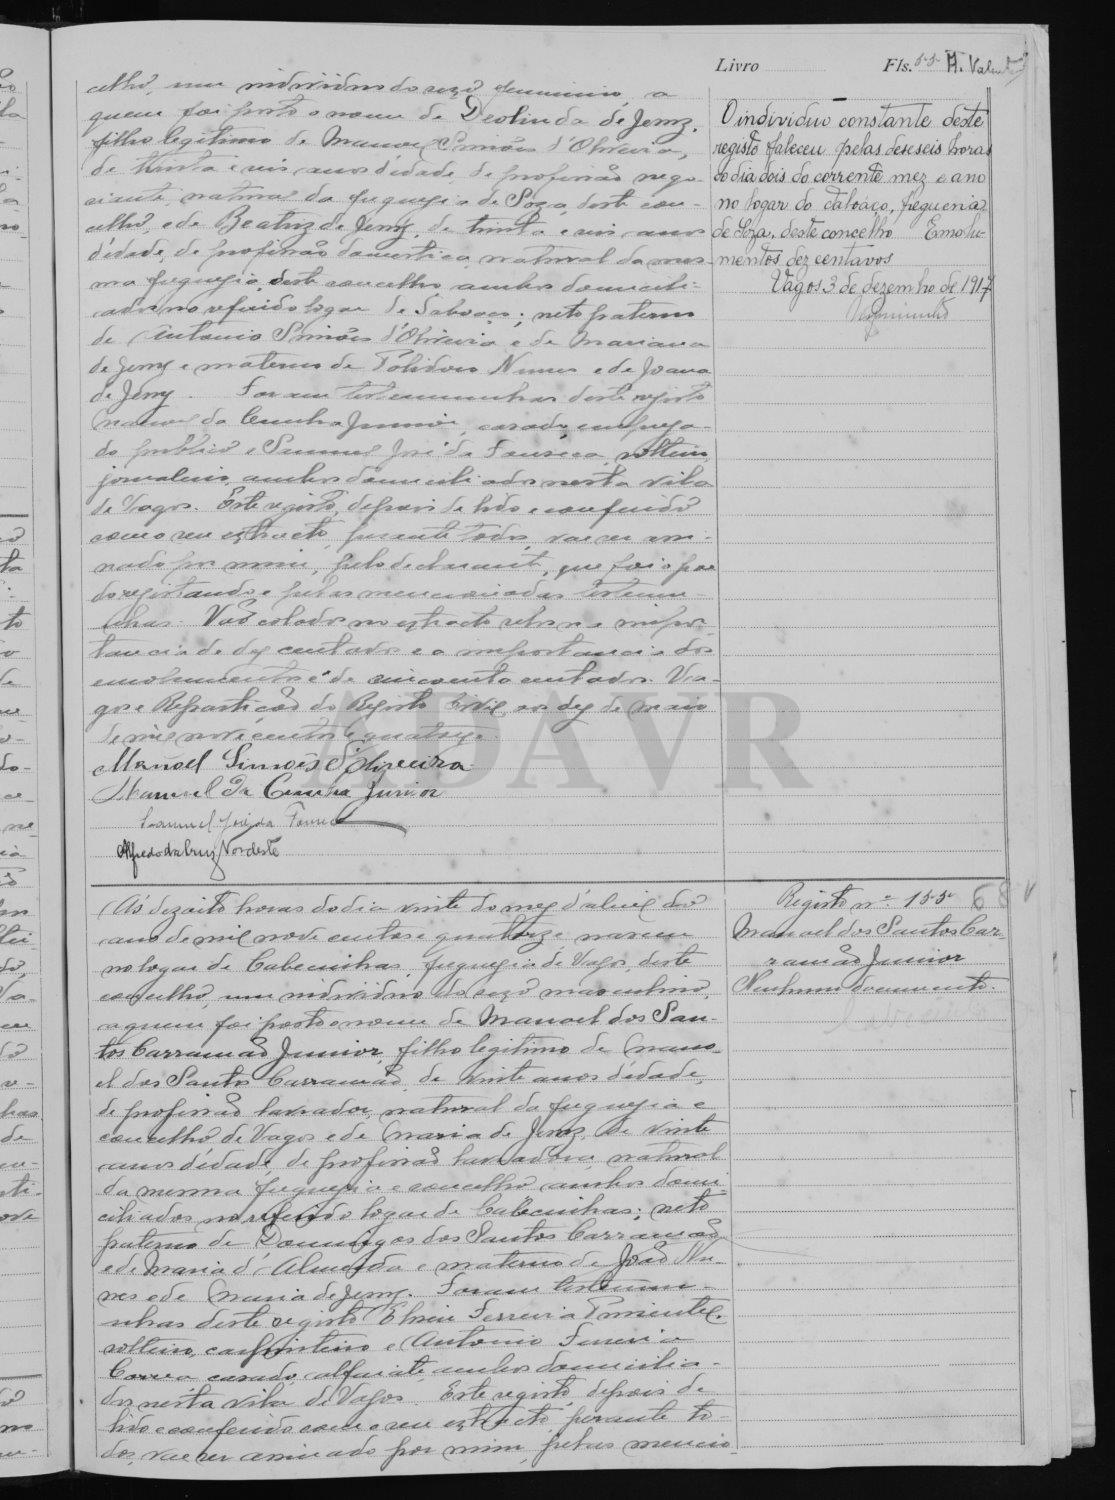 Livro Fls. 55 A. Valente
celho, um individuo do sexo femenino, a
quem foi posto o nome de Deolinda de Jesus,
filha legitima de Manoel Simões d'Oliveira,
de trinta e seis anos d'idade, de profissão nego-
ciante, natural da freguezia de Soza, deste con-
celho, e de Beatriz de Jesus, de trinta e seis anos
d'idade, de profissão domestica, natural da mes-
ma freguezia, deste concelho, ambos domicili-
ados no referido logar de Saboaço; neto paterno
de Antonio Simões d'Oliveira e de Mariana
de Jesus e materno de Nunes e de Joana
de Jesus. Foram testemunhas deste registo
Manoel da Cunha Junior, casado, emprega-
do publico e Samuel José da Fonseca, solteiro,
jornaleiro, ambos domiciliados nesta vila
de Vagos. Este registo, depois de lido e conferido
com o seu extracto, perante todos, vae ser assi-
nado por mim, pelo declarante, que foi o pae
do registando e pelas mencionadas testemu-
nhas. Vão colados no extracto selos na impor-
tancia de dez centavos e a importancia dos
emolumentos é de cincoenta centavos. Va-
gos e Repartição do Registo Civil, aos dez de maio
de mil nove centos e quatorze.
Manoel Simões d'Oliveira
Manuel da Cunha Junior
Samuel José da Fonseca
Alfredo da Cruz Nordeste
O individuo constante deste
registo faleceu pelas deseseis horas
do dia dois do corrente mez e ano
no logar do Saboaço, freguezia
de Soza, deste concelho Emolu-
mentos dez centavos
Vagos 3 de dezembro de 1917
ADAVR
Às dezoito horas do dia vinte do mez d'abril do
ano de mil nove centos e quatorze, nasceu
no logar de Cabecinhas, freguezia de Vagos, deste
concelho, um individuo do sexo masculino,
a quem foi posto o nome de Manoel dos San-
tos Carramão Junior, filho legitimo de Mano-
el dos Santos Carramão, de vinte anos d'idade,
de profissão lavrador, natural da freguezia e
concelho de Vagos e de Maria de Jesus, de vinte
anos d'idade, de profissão lavradora, natural
da mesma freguezia e concelho, ambos domi-
ciliados no referido logar de Cabecinhas; neto
paterno de Domingos dos Santos Carramão
e de Maria d'Almeida e materno de João Nu-
nes e de Maria de Jesus. Foram testemu-
nhas deste registo Ferreira Pimentel,
solteiro, carpinteiro e Antonio Ferreira
Correa casado, alfaiate, ambos domicilia-
dos nesta vila de Vagos. Este registo, depois de
lido e conferido com o seu extracto, perante to-
dos, vae ser assinado por mim, pelas mencio-
Registo nº 155 68 v
Manoel dos Santos Car-
ramão Junior
Nenhum documento.